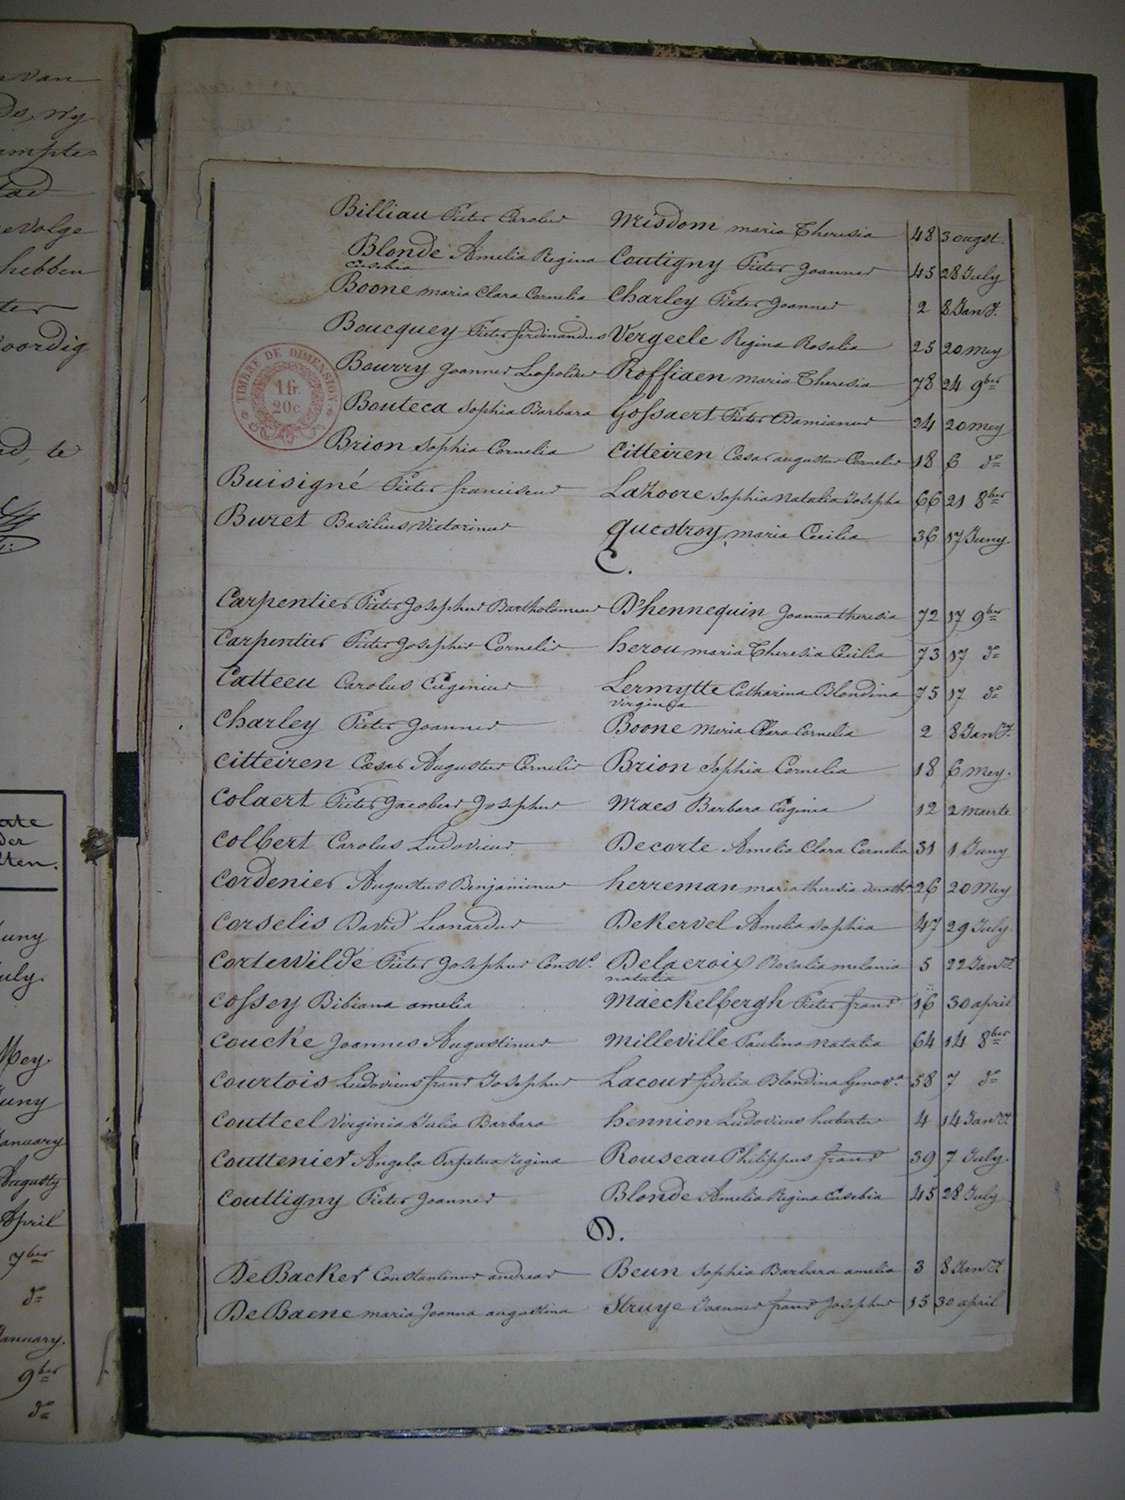 Billiau Pieter Carolus Misdom maria Theresia 48 30 augst.
Blonde Amelia Regina Coutigny Pieter Joannes 45 28 July
Eusebia
Boone maria Clara Cornelia Charley Pieter Joannes 2 8 Jan.y
Boucquey Pieter ferdinandus Vergeele Regina Rosalia 25 20 mey
Bourry Joannes Leopoldus Roffiaen maria Theresia 78 24 9ber
Bouteca Sophia Barbara Gossaert Pieter Damianus 24 20 mey
Brion Sophia Cornelia Citteiren Cæsar augustus Cornelis 18 6 do
Buisigné Pieter franciscus LaHoore Sophia Natalia Josepha 66 21 8ber
Buret Basilius Victorinus Questroy maria Cecilia 36 17 Juny.
C.
Carpentier Pieter Josephus Bartholomeus D'hennequin Joanna theresia 72 17 9ber
Carpentier Pieter Josephus Cornelis herou maria Theresia Cecilia 73 17 do
Catteeu Carolus Eugenius Lermytte Catharina Blondina 75 17 do
Virginia
Charley Pieter Joannes Boone Maria Clara Cornelia 2 8 Jan.y.
Citteiren Cæsar Augustus Cornelis Brion Sophia Cornelia 18 6 mey.
Colaert Pieter Jacobus Josephus Maes Barbara Eugenia 12 2 maerte
Colbert Carolus Ludovicus Decorte Amelia Clara Cornelia 31 1 Juny
Cordenier Augustus Benjaminus herreman maria theresia 26 20 Mey
Corselis David Leonardus DeKervel Amelia Sophia 47 29 July.
Cortewilde Pieter Josephus Const.s Delacroix Rosalia melania 5 22 Jan.y
natalia
Cossey Bibiana amelia Maeckelbergh Pieter frans 16 30 april
Coucke Joannes Augustinus Milleville Paulina Natalia 64 14 8ber
Courtois Ludovicus frans Josephus Lacour fidelia Blondina Genov.a 58 7 do
Coutteel Virginia Julia Barbara hennion Ludovicus hubertus 4 14 Jan.y
Couttenier Angela Perpetua Regina Rouseau Philippus frans 39 7 July.
Couttigny Pieter Joannes Blonde Amelia Regina Eusebia 45 28 July
D.
DeBacker Constantinus andreas Beun Sophia Barbara amelia 3 8 Jan.y
DeBaene maria Joanna augustina Struye Joannes frans Josephus 15 30 april
TIMBRE DE DIMENSION
1 fr.
20 c
van
wy
tad
hebben
te
der
uny
uly.
Mey.
uny
anuary
Augusty
April
7ber
do
anuary.
9ber
do